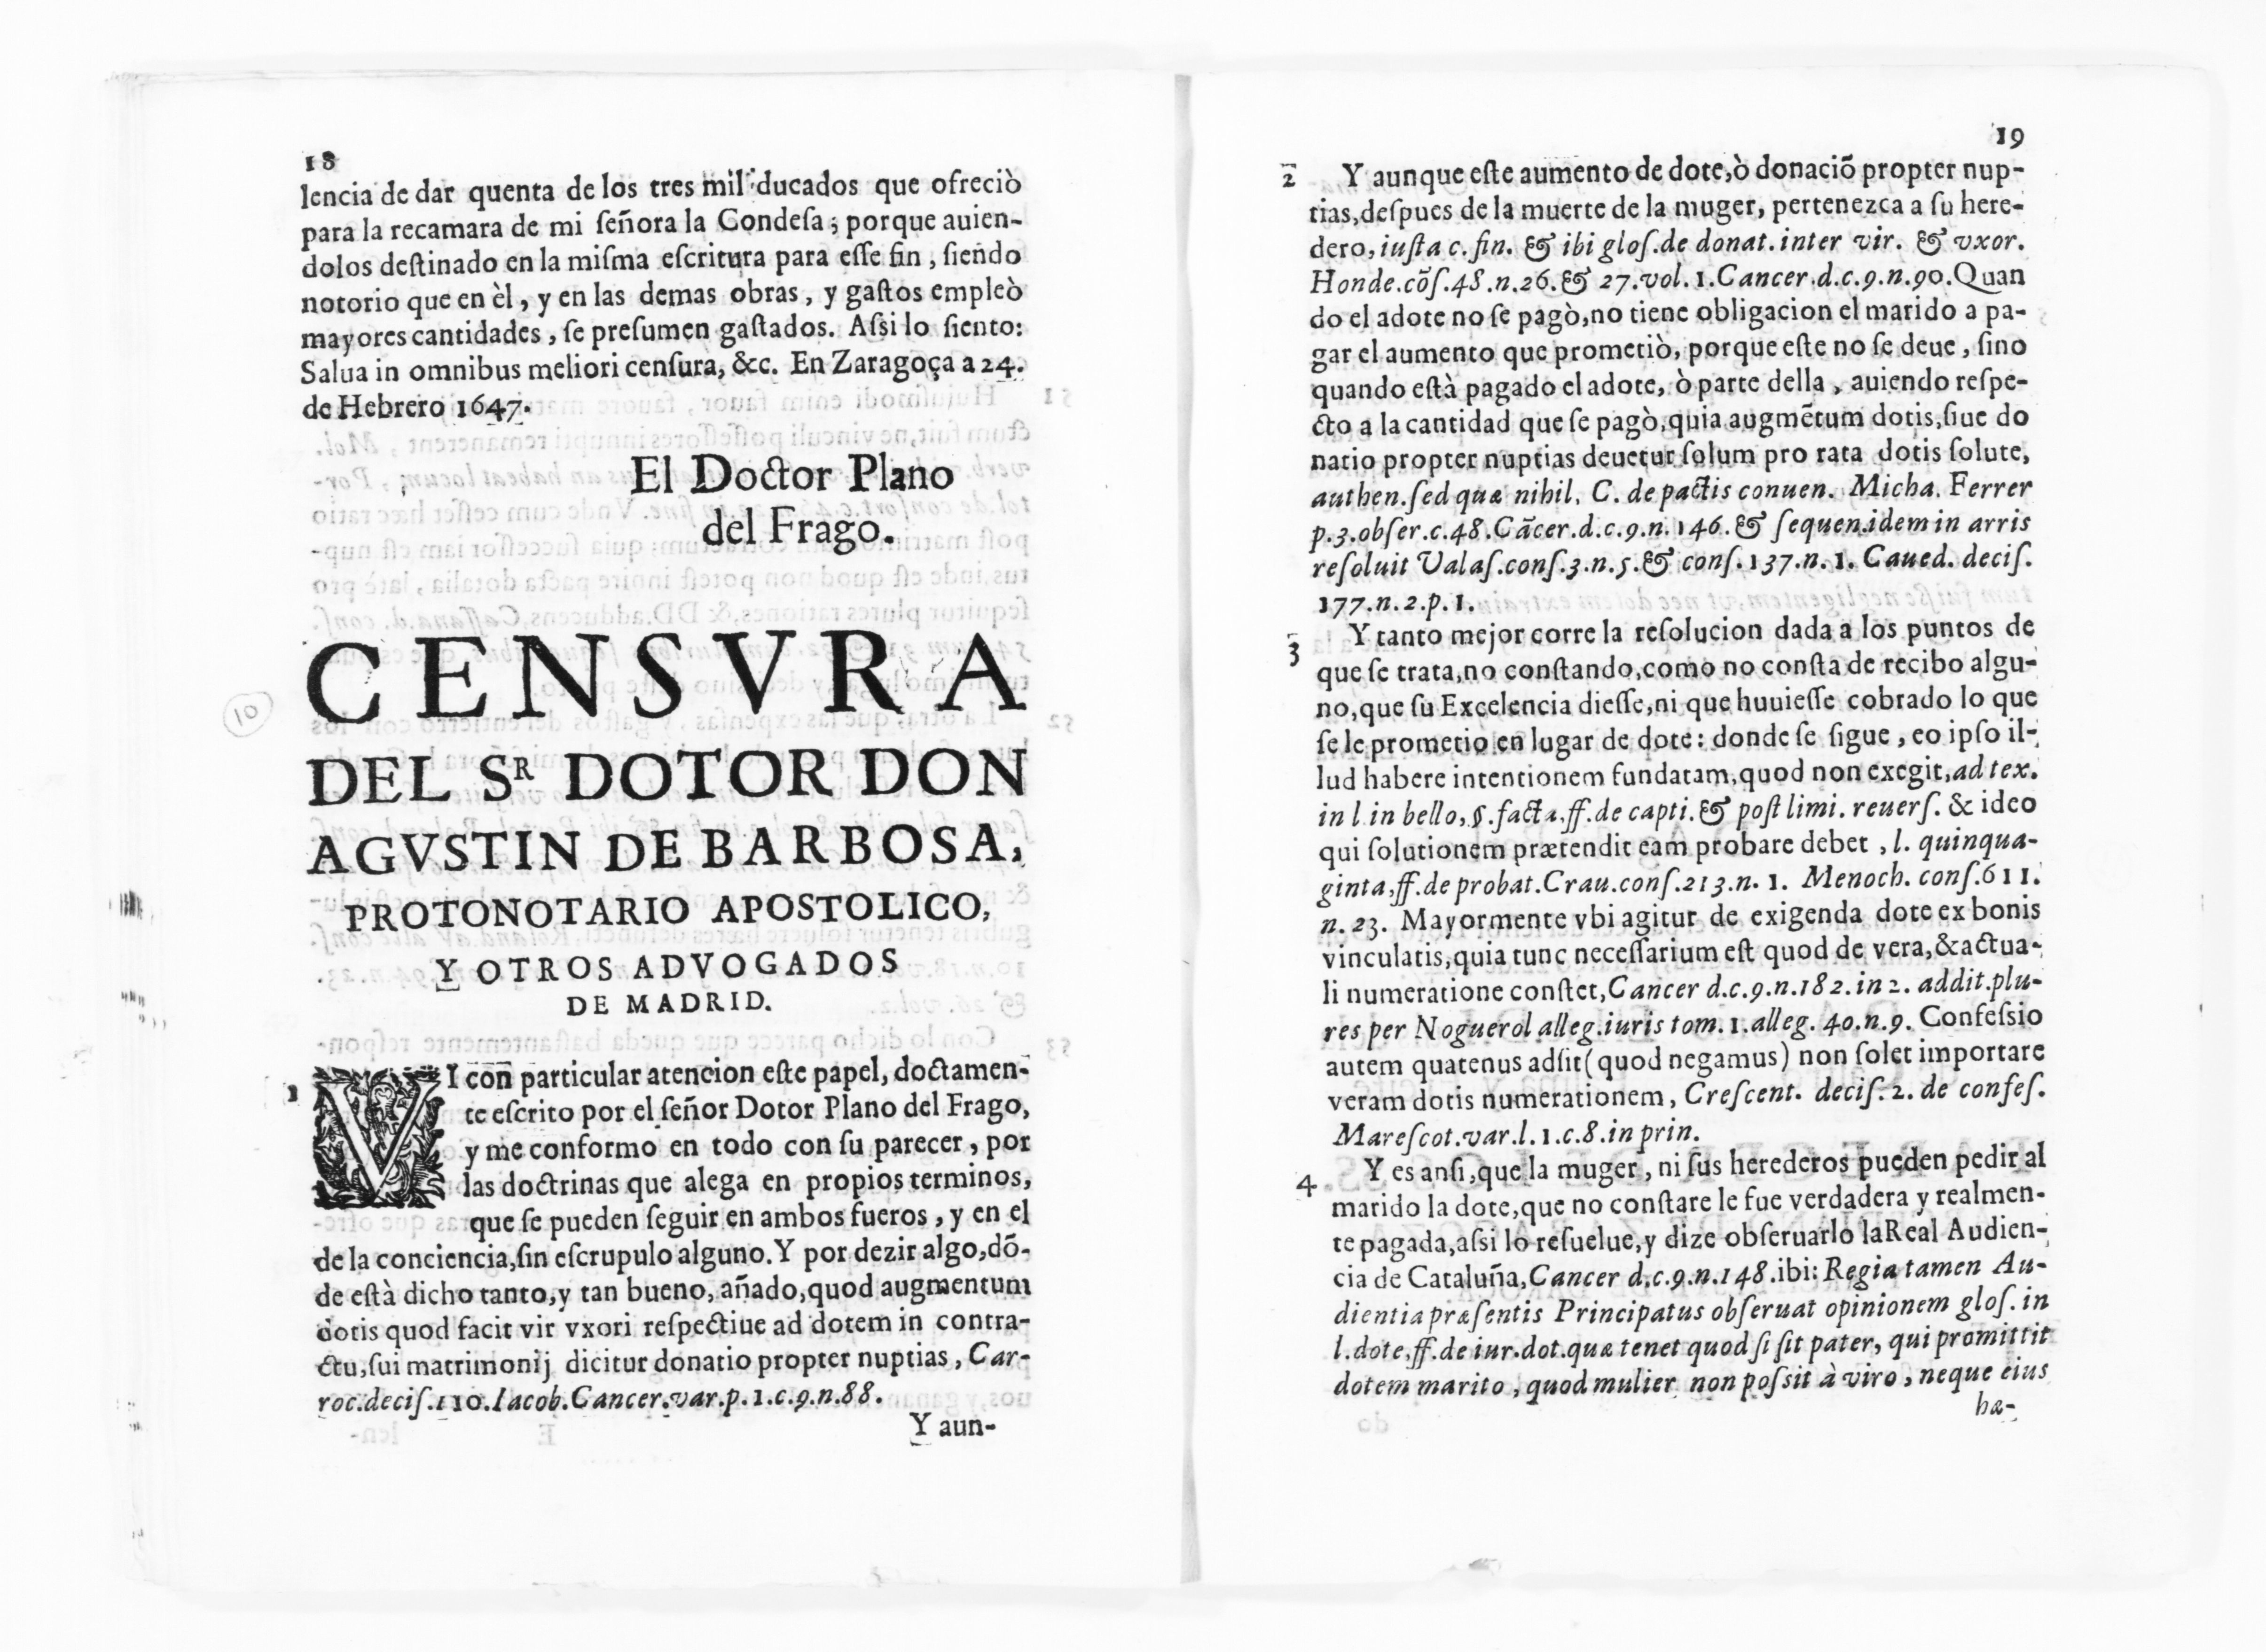 18
lencia de dar quenta de los tres mil ducados que ofreciò
para la recamara de mi ſeñora la Condeſa; porque auien-
dolos deſtinado en la miſma eſcritura para eſſe fin, ſiendo
notorio que en èl, y en las demas obras, y gaſtos empleò
mayores cantidades, ſe preſumen gaſtados. Aſsi lo ſiento:
Salua in omnibus meliori cenſura, &c. En Zaragoça a 24.
de Hebrero 1647.
El Doctor Plano
del Frago.
CENSVRA
DEL SR DOTOR DON
AGVSTIN DE BARBOSA,
PROTONOTARIO APOSTOLICO,
Y OTROS ADVOGADOS
DE MADRID.
10
1 VI con particular atencion eſte papel, doctamen-
te eſcrito por el ſeñor Dotor Plano del Frago,
y me conformo en todo con ſu parecer, por
las doctrinas que alega en propios terminos,
que ſe pueden ſeguir en ambos fueros, y en el
de la conciencia, ſin eſcrupulo alguno. Y por dezir algo, dõ-
de eſtà dicho tanto, y tan bueno, añado, quod augmentum
dotis quod facit vir vxori reſpectiue ad dotem in contra-
ctu, ſui matrimonij dicitur donatio propter nuptias, Car-
roc. deciſ. 110. Iacob. Cancer. var. p. 1. c. 9. n. 88.
Y aun-
19
2 Y aunque eſte aumento de dote, ò donaciõ propter nup-
tias, deſpues de la muerte de la muger, pertenezca a ſu here-
dero, iuſta c. fin. & ibi gloſ. de donat. inter vir. & vxor.
Honde. cõſ. 48. n. 26. & 27. vol. 1. Cancer. d. c. 9. n. 90. Quan
do el adote no ſe pagò, no tiene obligacion el marido a pa-
gar el aumento que prometiò, porque eſte no ſe deue, ſino
quando eſtà pagado el adote, ò parte della, auiendo reſpe-
cto a la cantidad que ſe pagò, quia augmẽtum dotis, ſiue do
natio propter nuptias deuetur ſolum pro rata dotis ſolute,
authen. ſed quæ nihil, C. de pactis conuen. Micha. Ferrer
p. 3. obſer. c. 48. Cãcer. d. c. 9. n. 146. & ſequen. idem in arris
reſoluit Valaſ. conſ. 3. n. 5. & conſ. 137. n. 1. Caued. deciſ.
177. n. 2. p. 1.
3 Y tanto mejor corre la reſolucion dada a los puntos de
que ſe trata, no conſtando, como no conſta de recibo algu-
no, que ſu Excelencia dieſſe, ni que huuieſſe cobrado lo que
ſe le prometio en lugar de dote: donde ſe ſigue, eo ipſo il-
lud habere intentionem fundatam, quod non exegit, ad tex.
in l. in bello, §. facta, ff. de capti. & poſt limi. reuerſ. & ideo
qui ſolutionem prætendit eam probare debet, l. quinqua-
ginta, ff. de probat. Crau. conſ. 213. n. 1. Menoch. conſ. 611.
n. 23. Mayormente vbi agitur de exigenda dote ex bonis
vinculatis, quia tunc neceſſarium eſt quod de vera, & actua-
li numeratione conſtet, Cancer d. c. 9. n. 182. in 2. addit. plu-
res per Noguerol alleg. iuris tom. 1. alleg. 40. n. 9. Confeſsio
autem quatenus adſit (quod negamus) non ſolet importare
veram dotis numerationem, Creſcent. deciſ. 2. de confeſ.
Mareſcot. var. l. 1. c. 8. in prin.
4 Y es anſi, que la muger, ni ſus herederos pueden pedir al
marido la dote, que no conſtare le fue verdadera y realmen-
te pagada, aſsi lo reſuelue, y dize obſeruarlo la Real Audien-
cia de Cataluña, Cancer d. c. 9. n. 148. ibi: Regia tamen Au-
dientia præſentis Principatus obſeruat opinionem gloſ. in
l. dote, ff. de iur. dot. quæ tenet quod ſi ſit pater, qui promittit
dotem marito, quod mulier non poſsit à viro, neque eius
hæ-